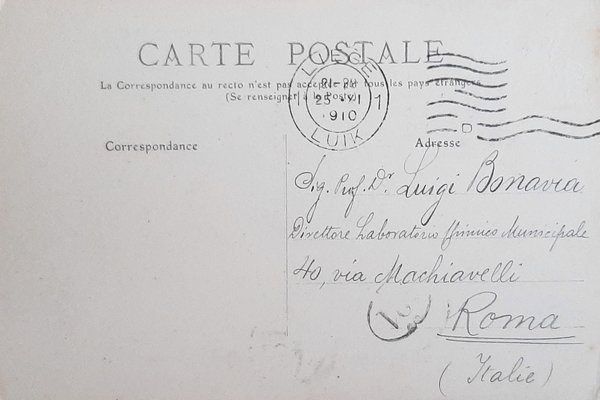 CARTE POSTALE
La Correspondance au recto n'est pas acceptée par tous les pays étrangers
(Se renseigner à la Poste)
LIEGE
21-22
1 25 VI 1
1910
LUIK
Correspondance
Adresse
Sig. Prof. Dr Luigi Bonavia
Direttore Laboratorio Chimico Municipale
40, via Machiavelli
Roma
(Italie)